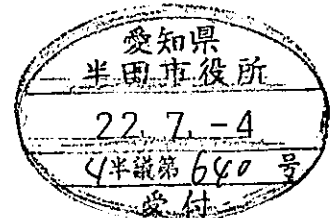 愛知県
半田市役所
22. 7. -4
4半議第 640 号
受付